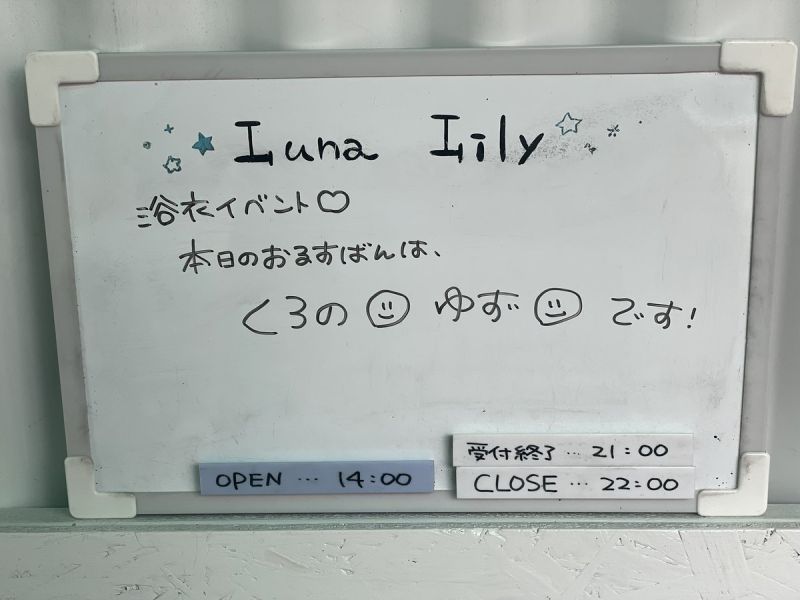 Luna Lily
浴衣イベント♡
本日のおるすばんは、
くろの☺ ゆず☺ です!
受付終了…21:00
OPEN…14:00
CLOSE…22:00